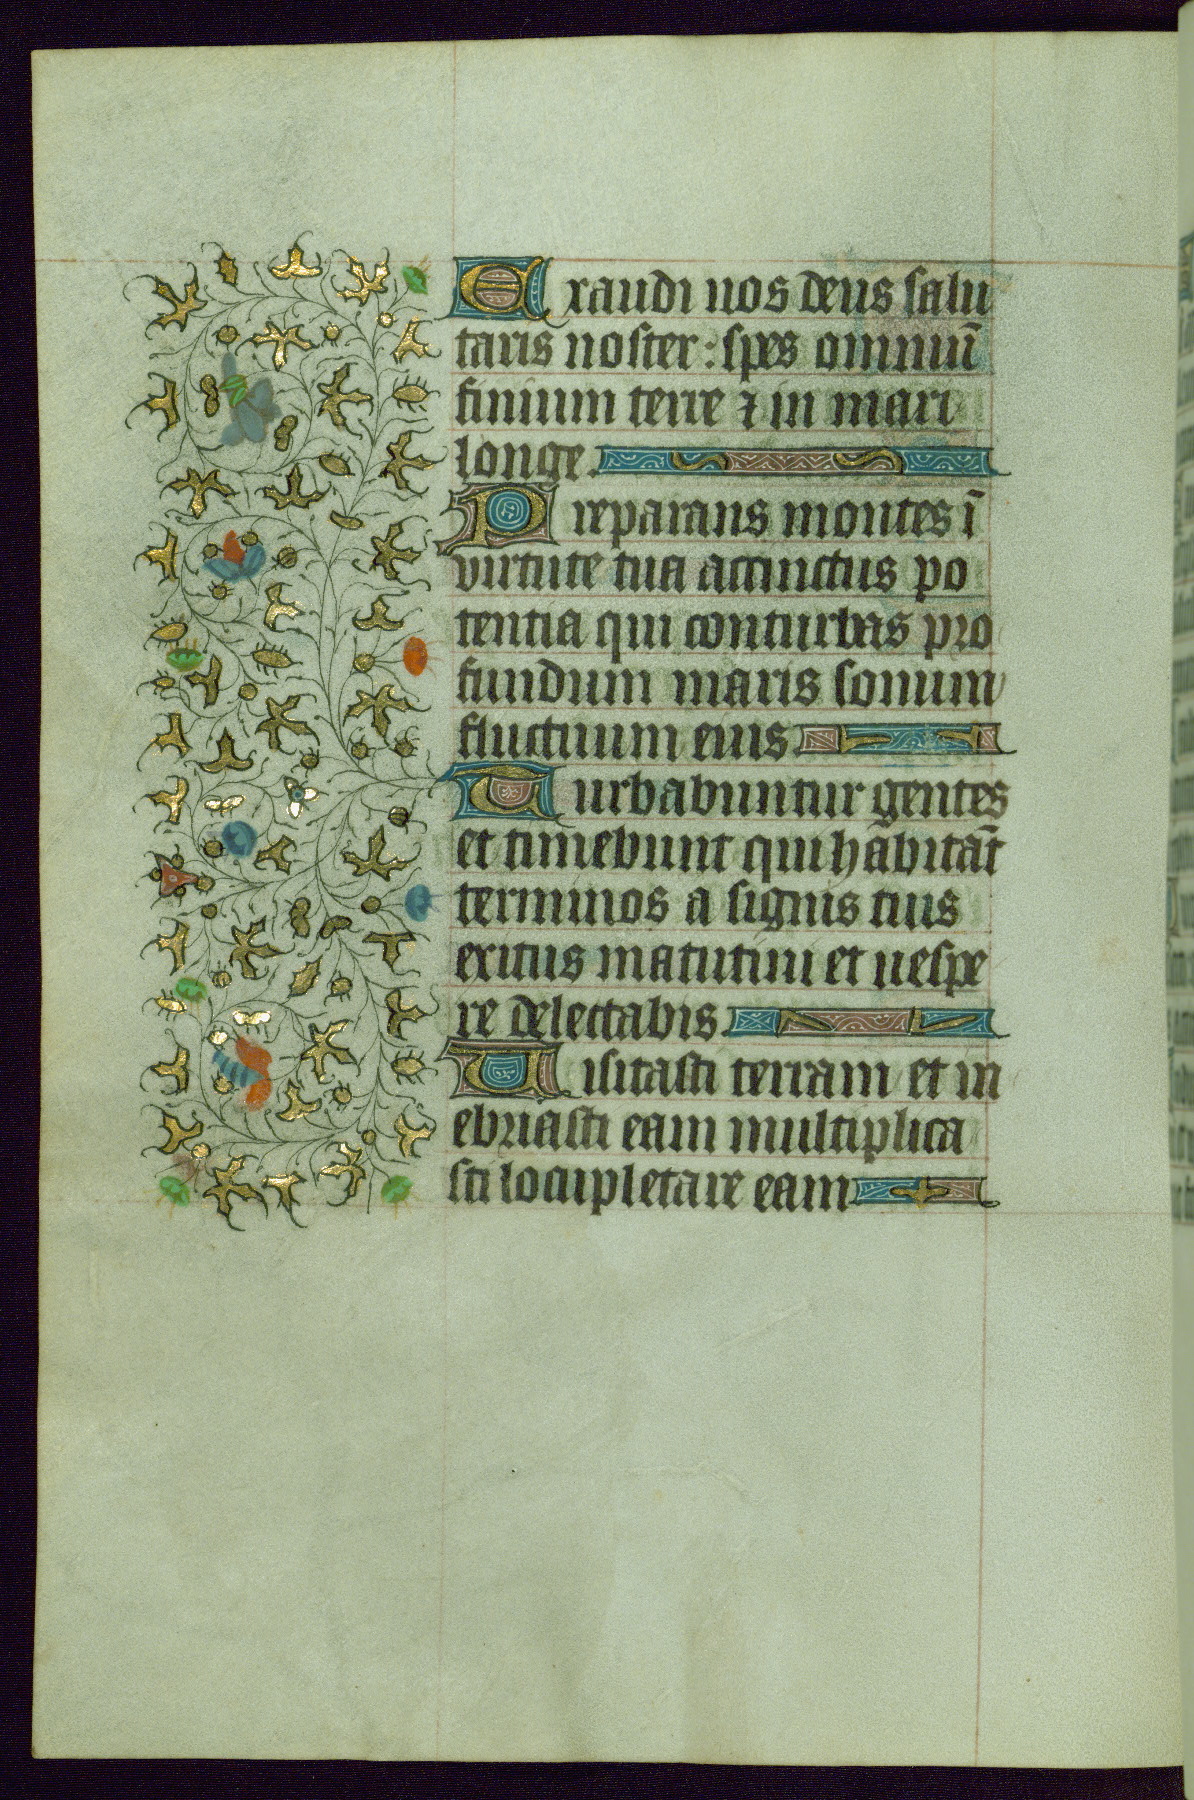 Exaudi nos deus salu
taris noster: spes omniū
finium terre ⁊ in mari
longe.
Preparans montes ī
virtute tua accinctus po
tentia qui conturbas pro
fundum maris sonum
fluctuum eius
Turbabuntur gentes
et timebunt qui habitāt
terminos a signis tuis
exitus matutini et uespe
re delectabis
Uisitasti terram et in
ebriasti eam multiplica
sti locupletare eam